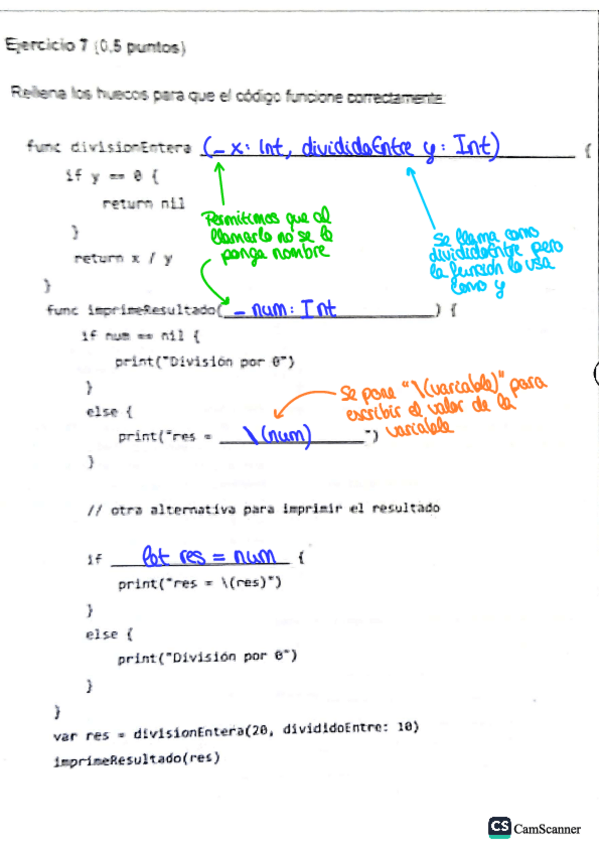 Ejercicio 7 (0,5 puntos)
Rellena los huecos para que el código funcione correctamente:
func divisionEntera (_ x: Int, divididoEntre y: Int) {
if y == 0 {
return nil
}
return x / y
}
Permitimos que al
llamarlo no se le
ponga nombre
Se llama como
divididoEntre pero
la función lo usa
como y
func imprimeResultado( _ num: Int ) {
if num == nil {
print("División por 0")
}
else {
print("res = \(num) ")
}
Se pone "\(variable)" para
escribir el valor de la
variable
// otra alternativa para imprimir el resultado
if let res = num {
print("res = \(res)")
}
else {
print("División por 0")
}
}
var res = divisionEntera(20, divididoEntre: 10)
imprimeResultado(res)
CS CamScanner